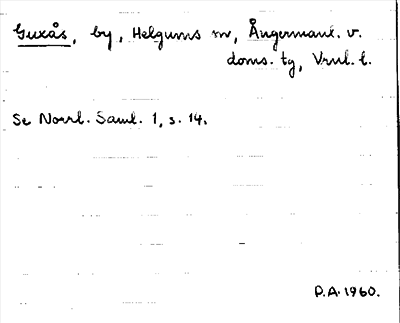 Guxås, by, Helgums sn, Ångermanl. v.
doms. tg, Vrnl. l.
Se Norrl. Saml. 1, s. 14.
P.A. 1960.